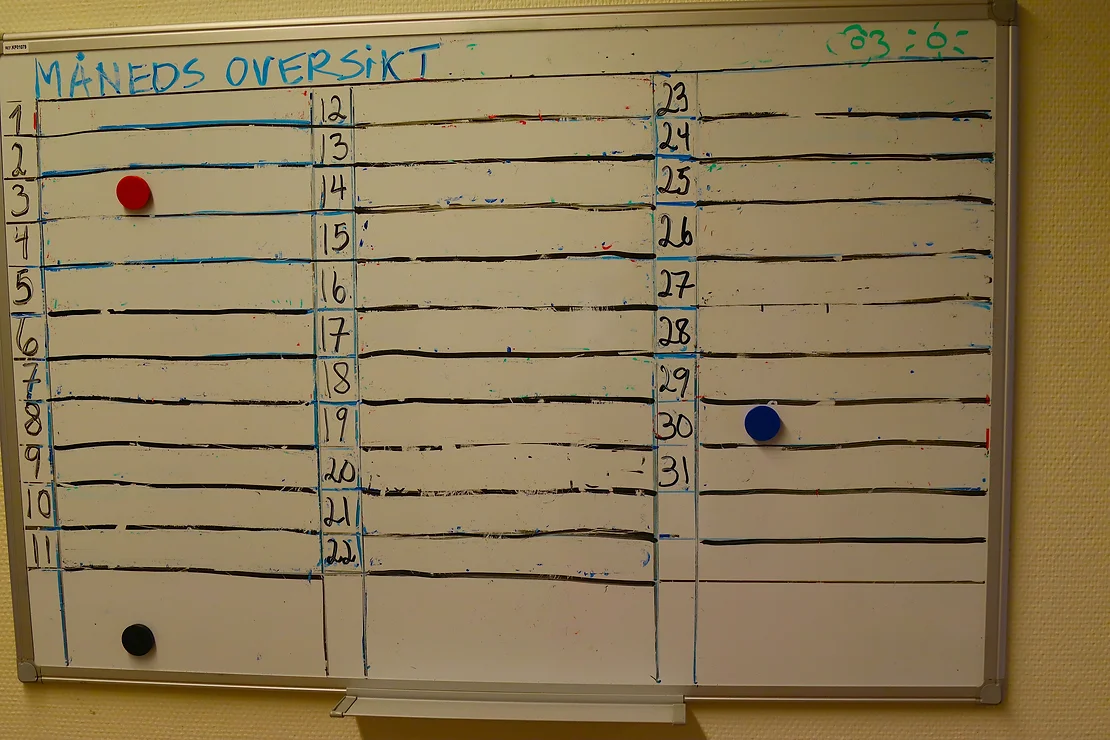 MÅNEDS OVERSIKT
1
2
3
4
5
6
7
8
9
10
11
12
13
14
15
16
17
18
19
20
21
22
23
24
25
26
27
28
29
30
31